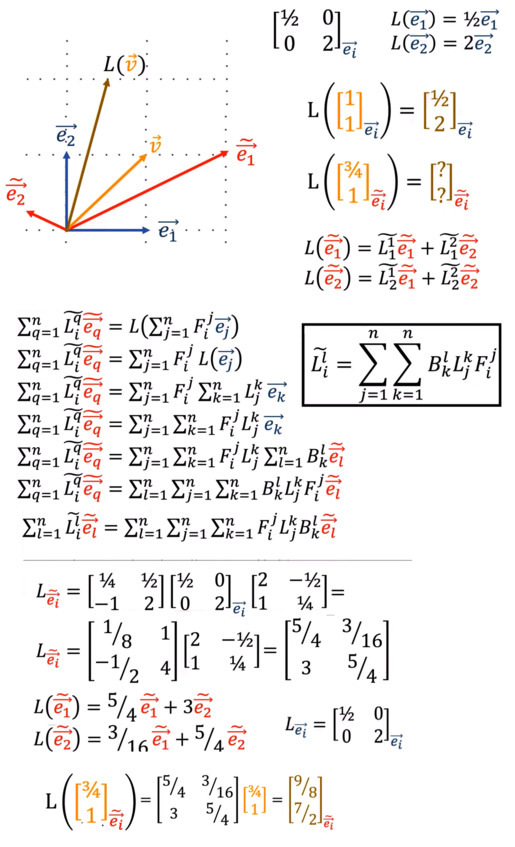 [½ 0; 0 2]_{\vec{e_i}}
L(\vec{e_1}) = ½\vec{e_1}
L(\vec{e_2}) = 2\vec{e_2}
L(\vec{v})
\vec{e_2}
\vec{v}
\widetilde{\vec{e_1}}
\widetilde{\vec{e_2}}
\vec{e_1}
L([1; 1]_{\vec{e_i}}) = [½; 2]_{\vec{e_i}}
L([¾; 1]_{\widetilde{\vec{e_i}}}) = [?; ?]_{\widetilde{\vec{e_i}}}
L(\widetilde{\vec{e_1}}) = \widetilde{L_1^1}\widetilde{\vec{e_1}} + \widetilde{L_1^2}\widetilde{\vec{e_2}}
L(\widetilde{\vec{e_2}}) = \widetilde{L_2^1}\widetilde{\vec{e_1}} + \widetilde{L_2^2}\widetilde{\vec{e_2}}
∑_{q=1}^n \widetilde{L_i^q}\widetilde{\vec{e_q}} = L(∑_{j=1}^n F_i^j \vec{e_j})
∑_{q=1}^n \widetilde{L_i^q}\widetilde{\vec{e_q}} = ∑_{j=1}^n F_i^j L(\vec{e_j})
∑_{q=1}^n \widetilde{L_i^q}\widetilde{\vec{e_q}} = ∑_{j=1}^n F_i^j ∑_{k=1}^n L_j^k \vec{e_k}
∑_{q=1}^n \widetilde{L_i^q}\widetilde{\vec{e_q}} = ∑_{j=1}^n ∑_{k=1}^n F_i^j L_j^k \vec{e_k}
∑_{q=1}^n \widetilde{L_i^q}\widetilde{\vec{e_q}} = ∑_{j=1}^n ∑_{k=1}^n F_i^j L_j^k ∑_{l=1}^n B_k^l \widetilde{\vec{e_l}}
∑_{q=1}^n \widetilde{L_i^q}\widetilde{\vec{e_q}} = ∑_{l=1}^n ∑_{j=1}^n ∑_{k=1}^n B_k^l L_j^k F_i^j \widetilde{\vec{e_l}}
∑_{l=1}^n \widetilde{L_i^l}\widetilde{\vec{e_l}} = ∑_{l=1}^n ∑_{j=1}^n ∑_{k=1}^n F_i^j L_j^k B_k^l \widetilde{\vec{e_l}}
\widetilde{L_i^l} = ∑_{j=1}^n ∑_{k=1}^n B_k^l L_j^k F_i^j
L_{\widetilde{\vec{e_i}}} = [¼ ½; −1 2][½ 0; 0 2]_{\vec{e_i}}[2 −½; 1 ¼] =
L_{\widetilde{\vec{e_i}}} = [1/8 1; −1/2 4][2 −½; 1 ¼] = [5/4 3/16; 3 5/4]
L(\widetilde{\vec{e_1}}) = 5/4 \widetilde{\vec{e_1}} + 3\widetilde{\vec{e_2}}
L(\widetilde{\vec{e_2}}) = 3/16 \widetilde{\vec{e_1}} + 5/4 \widetilde{\vec{e_2}}
L_{\vec{e_i}} = [½ 0; 0 2]_{\vec{e_i}}
L([¾; 1]_{\widetilde{\vec{e_i}}}) = [5/4 3/16; 3 5/4][¾; 1] = [9/8; 7/2]_{\widetilde{\vec{e_i}}}